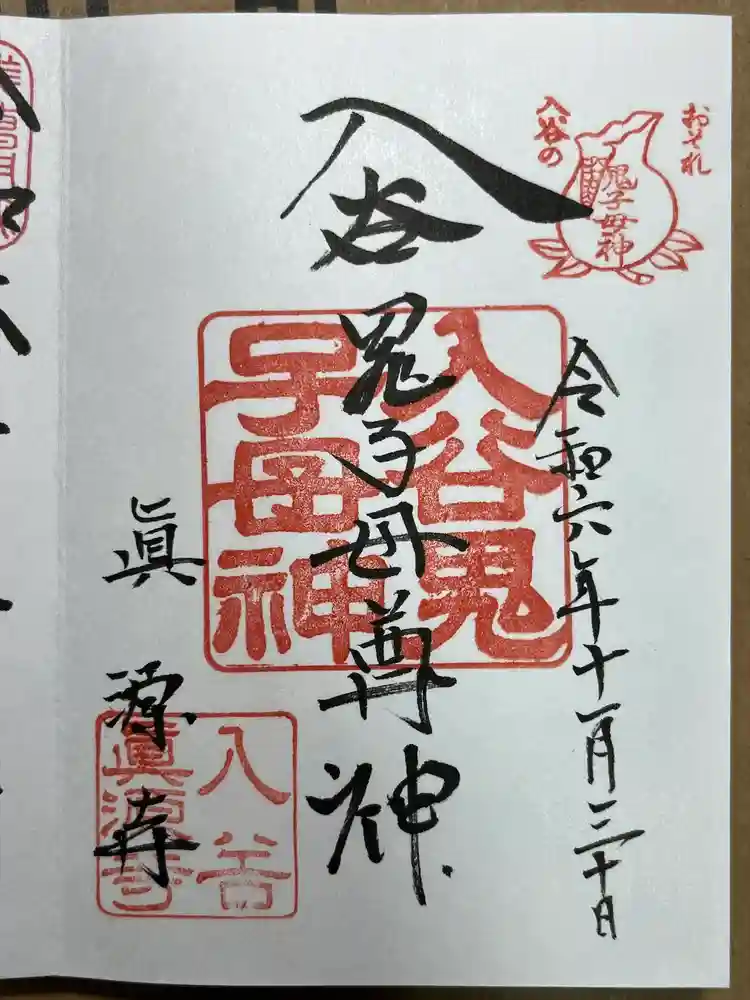 おそれ
入谷の
鬼子母神
令和六年十一月三十日
入谷鬼子母尊神
入谷鬼
子母神
眞源寺
入谷
眞源寺